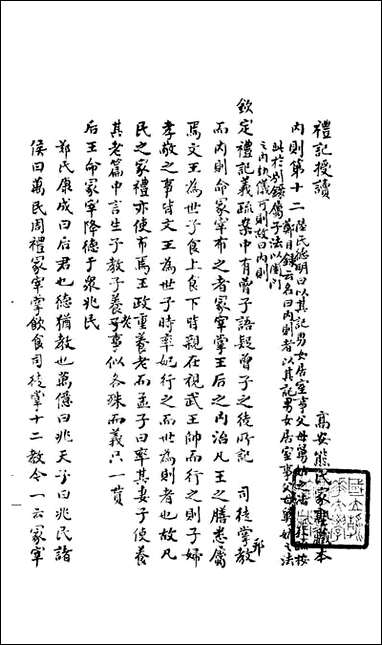 禮記授讀
高安熊氏家塾讀本
內則第十二
陸氏德明曰以其記男女居室事父母舅姑之法
鄭目錄云名曰內則者以其記男女居室事父母舅姑之法
此於別錄屬子法以閨門
之內軌儀可則故曰內則
欽定禮記義疏案中有曾子語疑曾子之徒所記 司徒掌邦教
而內則命冢宰布之者冢宰掌王后之內治凡王之膳悉屬
焉文王為世子食上食下時親在視武王帥而行之則子婦
孝敬之事皆文王為世子時率妃行之而世為則者也故凡
民之家禮亦使布焉王政重養老而孟子曰率其妻子使養
其老篇中言生子教子養老事似各殊而義只一貫
后王命冢宰降德于眾兆民
鄭氏康成曰后君也德猶教也萬億曰兆天子曰兆民諸
侯曰萬民周禮冢宰掌飲食司徒掌十二教令一云冢宰